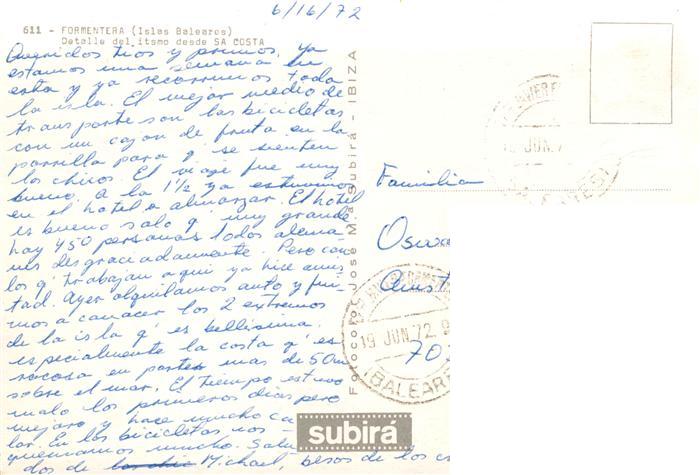 6/16/72
611 - FORMENTERA (Islas Baleares)
Detalle del itsmo desde SA COSTA
Queridos tios y primos, Ya
estamos una semana en
esta y ya recorrimos toda
la isla. El mejor medio de
transporte son las bicicletas
con un cajon de fruta en la
parrilla para q' se sienten
los chicos. El viaje fue muy
bueno. A la 1½ ya estuvimos
en el hotel a almorzar. El hotel
es bueno salo q' muy grande
hay 450 personas todos alema
nes desgraciadamente. Pero con
los q' trabajan aqui ya hice amis
tad. Ayer alquilamos auto y fui
mos a conocer los 2 extremos
de la isla q' es bellisima.
especialmente la costa q' es
rocosa en partes mas de 50m
sobre el mar. El tiempo estuvo
malo los primeros dias pero
mejoro y hace mucho ca
lor. En las bicicletas nos
quemamos mucho. Salu
dos de Michael, besos de los c
Foto color José Mª Subirá - IBIZA
subirá
Familia
Osw
Amst
70
19 JUN. 7
19 JUN 72 9
(BALEARES)